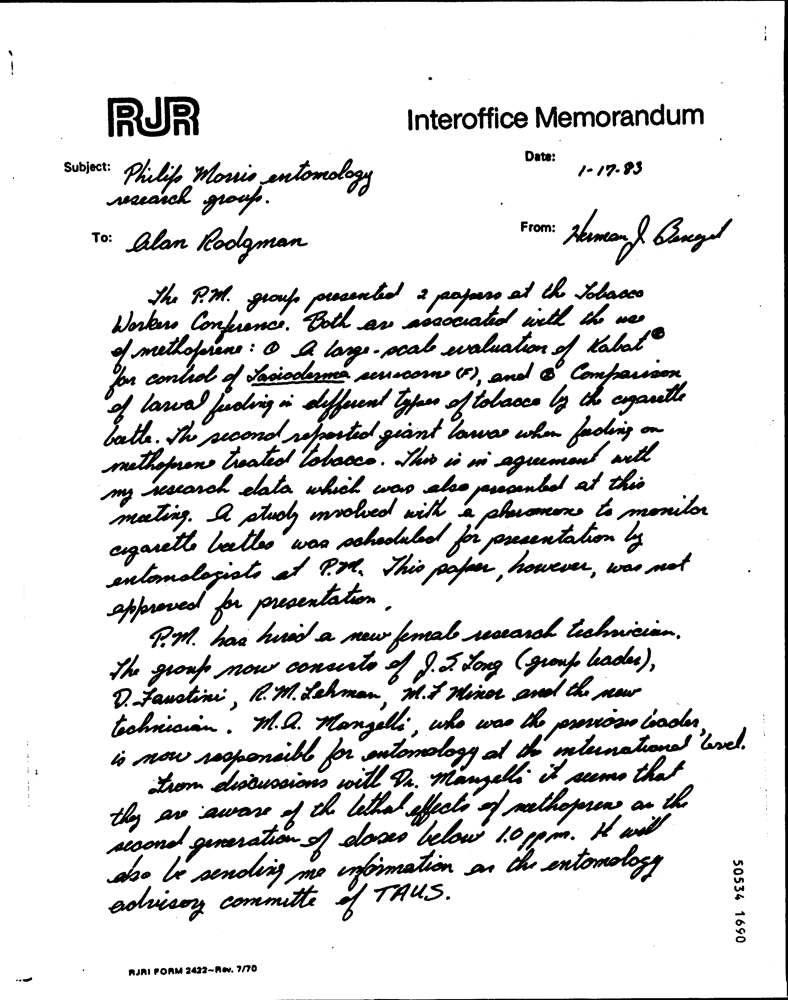 RJR
Interoffice Memorandum
Subject: Philip Morris entomology
research group.
Date: 1-17-83
To: Alan Rodgman
From: Herman J.
The P.M. group presented 2 papers at the Tobacco
Workers Conference. Both are associated with the use
of methoprene: ① A large-scale evaluation of Kabat®
for control of Lasioderma serricorne (F), and ② Comparison
of larval feeding in different types of tobacco by the cigarette
beetle. The second reported giant larvae when feeding on
methoprene treated tobacco. This is in agreement with
my research data which was also presented at this
meeting. A study involved with a pheromone to monitor
cigarette beetles was scheduled for presentation by
entomologists at P.M. This paper, however, was not
approved for presentation.
P.M. has hired a new female research technician.
The group now consists of J.S. Long (group leader),
D. Faustini, R.M. Lehman, M.F Minor and the new
technician. M.A. Manzelli, who was the previous leader,
is now responsible for entomology at the international level.
From discussions with Dr. Manzelli it seems that
they are aware of the lethal effects of methoprene on the
second generation of doses below 1.0 ppm. He will
also be sending me information on the entomology
advisory committe of TAUS.
50534 1690
RJRI FORM 2422-Rev. 7/70